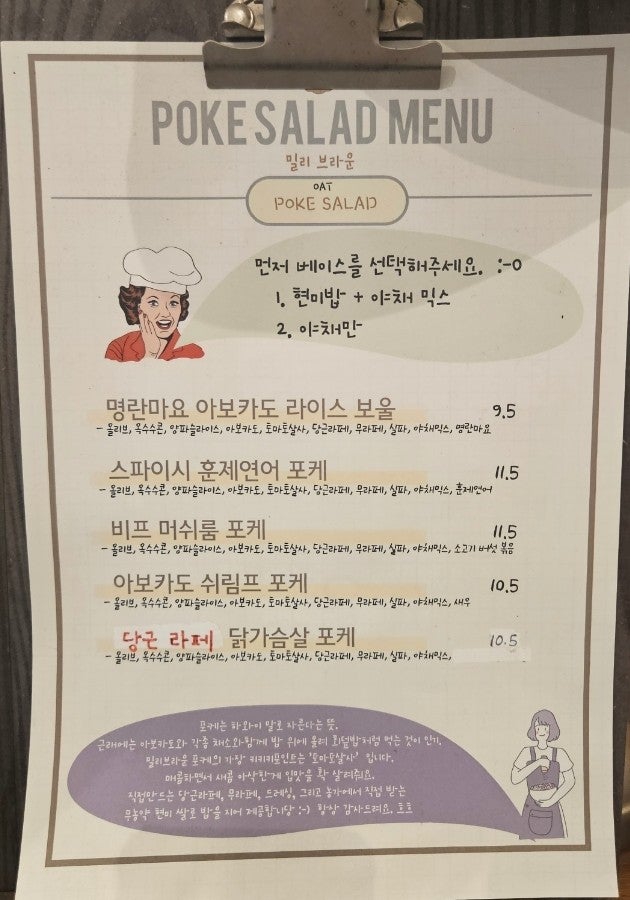 POKE SALAD MENU
밀리 브라운
OAT
POKE SALAD
먼저 베이스를 선택해주세요. :-o
1. 현미밥 + 야채 믹스
2. 야채만
명란마요 아보카도 라이스 보울 9.5
- 올리브, 옥수수콘, 양파슬라이스, 아보카도, 토마토살사, 당근라페, 무라페, 실파, 야채믹스, 명란마요
스파이시 훈제연어 포케 11.5
- 올리브, 옥수수콘, 양파슬라이스, 아보카도, 토마토살사, 당근라페, 무라페, 실파, 야채믹스, 훈제연어
비프 머쉬룸 포케 11.5
- 올리브, 옥수수콘, 양파슬라이스, 아보카도, 토마토살사, 당근라페, 무라페, 실파, 야채믹스, 소고기 버섯 볶음
아보카도 쉬림프 포케 10.5
- 올리브, 옥수수콘, 양파슬라이스, 아보카도, 토마토살사, 당근라페, 무라페, 실파, 야채믹스, 새우
당근 라페 닭가슴살 포케 10.5
- 올리브, 옥수수콘, 양파슬라이스, 아보카도, 토마토살사, 당근라페, 무라페, 실파, 야채믹스,
포케는 하와이 말로 자른다는 뜻.
근래에는 아보카도와 각종 채소와 함께 밥 위에 올려 회덮밥처럼 먹는 것이 인기.
밀리브라운 포케의 가장 키키키포인트는 '토마토살사' 입니다.
매콤하면서 새콤 아삭한게 입맛을 확 살려줘요.
직접만드는 당근라페, 무라페, 드레싱, 그리고 농가에서 직접 받는
무농약 현미 쌀로 밥을 지어 제공합니당 :-) 항상 감사드려요. 흐흐